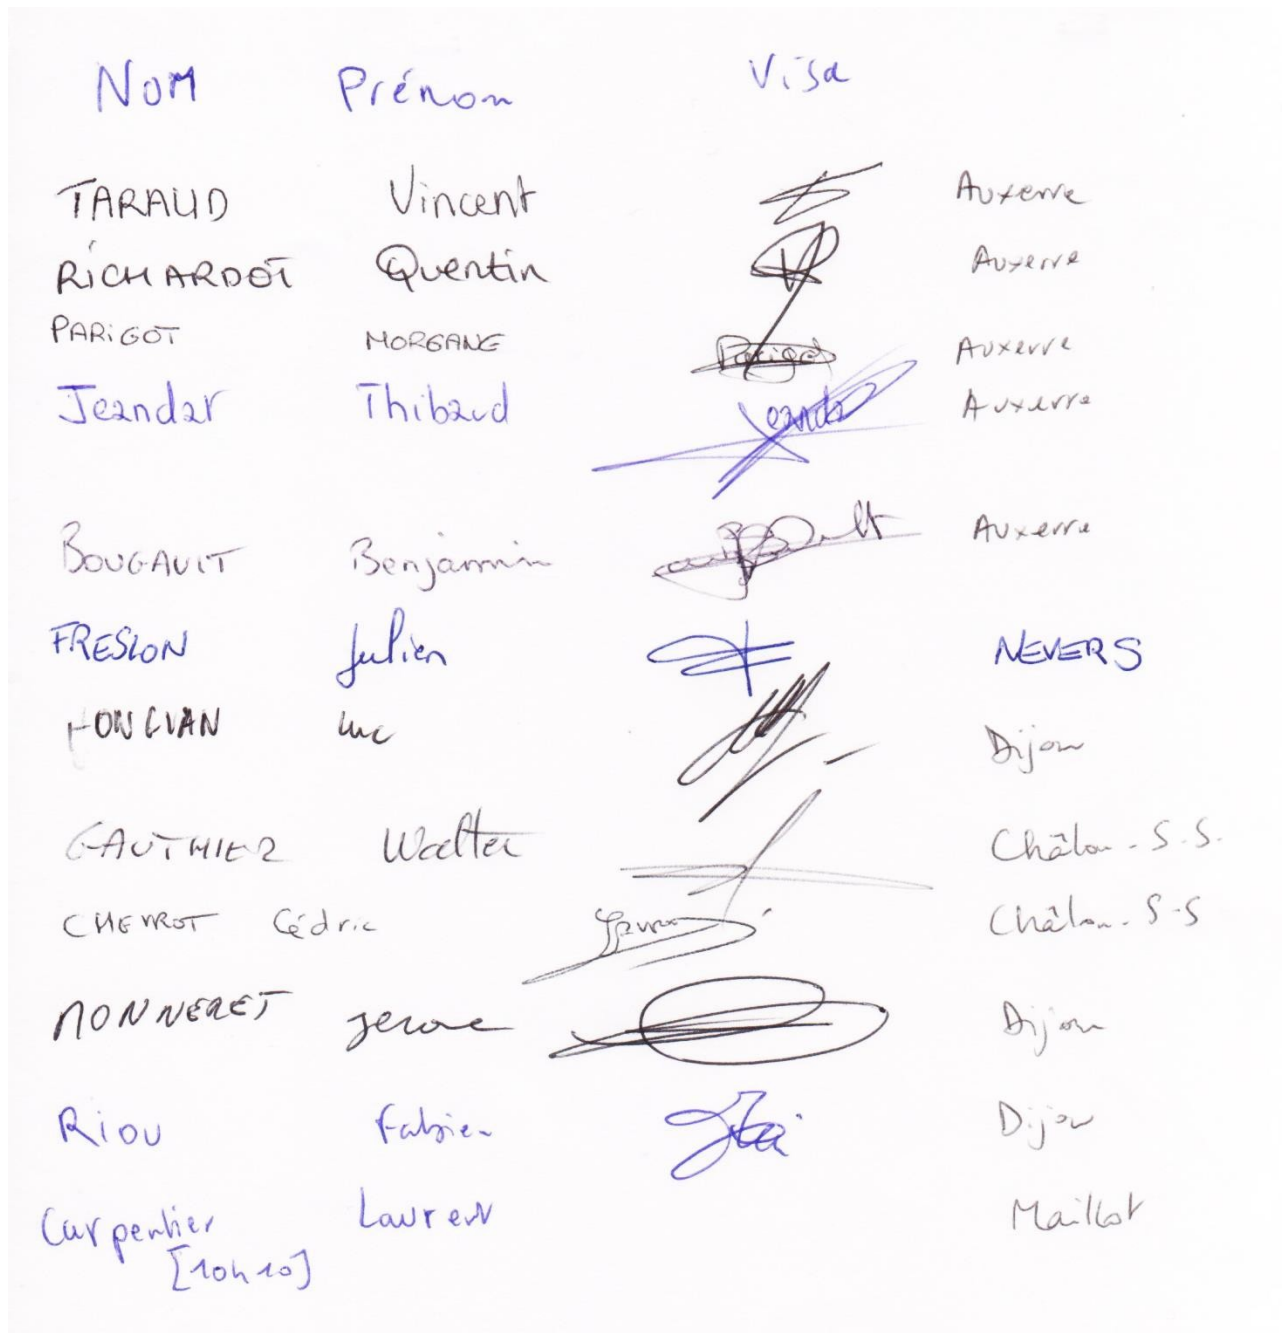 NOM Prénom Visa
TARAUD Vincent Auxerre
RICHARDOT Quentin Auxerre
PARIGOT MORGANE Parigot Auxerre
Jeandar Thibaud Jeanda Auxerre
BOUGAULT Benjamin Auxerre
FRESLON Julien NEVERS
Luc Dijon
GAUTHIER Walter Châlon-S.S.
CHEVROT Cédric Châlon-S-S
MONNERET Jerome Dijon
Riou Fabien Dijon
Carpentier Laurent Maillot
[10h10]